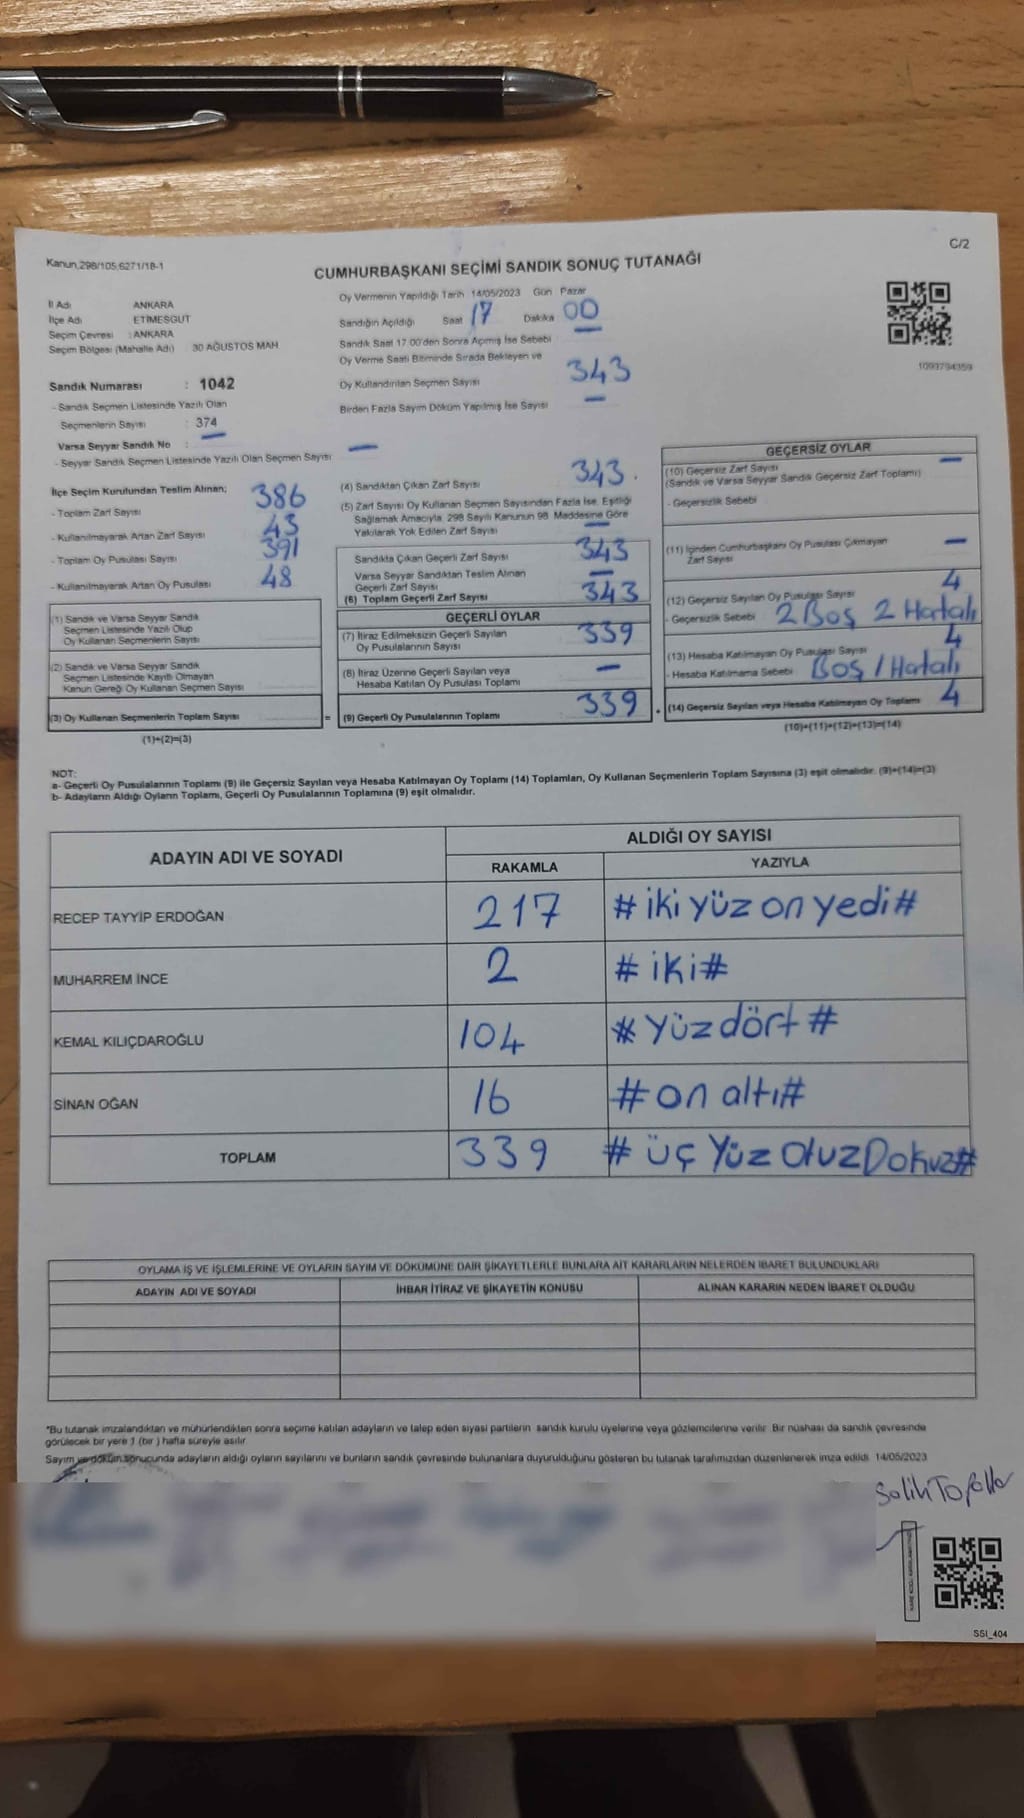 Kanun,298/105,6271/18-1
C/2
CUMHURBAŞKANI SEÇİMİ SANDIK SONUÇ TUTANAĞI
İl Adı ANKARA
İlçe Adı ETİMESGUT
Seçim Çevresi : ANKARA
Seçim Bölgesi (Mahalle Adı) 30 AĞUSTOS MAH
Sandık Numarası : 1042
- Sandık Seçmen Listesinde Yazılı Olan
Seçmenlerin Sayısı : 374
Varsa Seyyar Sandık No : —
- Seyyar Sandık Seçmen Listesinde Yazılı Olan Seçmen Sayısı —
Oy Vermenin Yapıldığı Tarih 14/05/2023 Gün Pazar
Sandığın Açıldığı Saat 17 Dakika 00
Sandık Saat 17.00'den Sonra Açılmış İse Sebebi —
Oy Verme Saati Bitiminde Sırada Bekleyen ve
Oy Kullandırılan Seçmen Sayısı 343
Birden Fazla Sayım Döküm Yapılmış İse Sayısı —
1093794359
İlçe Seçim Kurulundan Teslim Alınan;
- Toplam Zarf Sayısı 386
- Kullanılmayarak Artan Zarf Sayısı 43
- Toplam Oy Pusulası Sayısı 391
- Kullanılmayarak Artan Oy Pusulası 48
(1) Sandık ve Varsa Seyyar Sandık
Seçmen Listesinde Yazılı Olup
Oy Kullanan Seçmenlerin Sayısı
(2) Sandık ve Varsa Seyyar Sandık
Seçmen Listesinde Kayıtlı Olmayan
Kanun Gereği Oy Kullanan Seçmen Sayısı
(3) Oy Kullanan Seçmenlerin Toplam Sayısı =
(1)+(2)=(3)
(4) Sandıktan Çıkan Zarf Sayısı 343.
(5) Zarf Sayısı Oy Kullanan Seçmen Sayısından Fazla İse, Eşitliği
Sağlamak Amacıyla, 298 Sayılı Kanunun 98. Maddesine Göre
Yakılarak Yok Edilen Zarf Sayısı —
Sandıkta Çıkan Geçerli Zarf Sayısı 343
Varsa Seyyar Sandıktan Teslim Alınan
Geçerli Zarf Sayısı —
(6) Toplam Geçerli Zarf Sayısı 343
GEÇERLİ OYLAR
(7) İtiraz Edilmeksizin Geçerli Sayılan
Oy Pusulalarının Sayısı 339
(8) İtiraz Üzerine Geçerli Sayılan veya
Hesaba Katılan Oy Pusulası Toplamı —
(9) Geçerli Oy Pusulalarının Toplamı 339
GEÇERSİZ OYLAR
(10) Geçersiz Zarf Sayısı —
(Sandık ve Varsa Seyyar Sandık Geçersiz Zarf Toplamı)
- Geçersizlik Sebebi
(11) İçinden Cumhurbaşkanı Oy Pusulası Çıkmayan
Zarf Sayısı —
(12) Geçersiz Sayılan Oy Pusulası Sayısı 4
- Geçersizlik Sebebi 2 Boş 2 Hatalı
(13) Hesaba Katılmayan Oy Pusulası Sayısı 4
- Hesaba Katılmama Sebebi Boş / Hatalı
(14) Geçersiz Sayılan veya Hesaba Katılmayan Oy Toplamı 4
(10)+(11)+(12)+(13)=(14)
NOT:
a- Geçerli Oy Pusulalarının Toplamı (9) ile Geçersiz Sayılan veya Hesaba Katılmayan Oy Toplamı (14) Toplamları, Oy Kullanan Seçmenlerin Toplam Sayısına (3) eşit olmalıdır. (9)+(14)=(3)
b- Adayların Aldığı Oyların Toplamı, Geçerli Oy Pusulalarının Toplamına (9) eşit olmalıdır.
ADAYIN ADI VE SOYADI
ALDIĞI OY SAYISI
RAKAMLA YAZIYLA
RECEP TAYYİP ERDOĞAN 217 # iki yüz on yedi #
MUHARREM İNCE 2 # iki #
KEMAL KILIÇDAROĞLU 104 # yüz dört #
SİNAN OĞAN 16 # on altı #
TOPLAM 339 # üç Yüz Otuz Dokuz #
OYLAMA İŞ VE İŞLEMLERİNE VE OYLARIN SAYIM VE DÖKÜMÜNE DAİR ŞİKAYETLERLE BUNLARA AİT KARARLARIN NELERDEN İBARET BULUNDUKLARI
ADAYIN ADI VE SOYADI İHBAR İTİRAZ VE ŞİKAYETİN KONUSU ALINAN KARARIN NEDEN İBARET OLDUĞU
*Bu tutanak imzalandıktan ve mühürlendikten sonra seçime katılan adayların ve talep eden siyasi partilerin sandık kurulu üyelerine veya gözlemcilerine verilir. Bir nüshası da sandık çevresinde
görülecek bir yere 1 (bir ) hafta süreyle asılır.
Sayım ve döküm sonucunda adayların aldığı oyların sayılarını ve bunların sandık çevresinde bulunanlara duyurulduğunu gösteren bu tutanak tarafımızdan düzenlenerek imza edildi. 14/05/2023
SSI_404